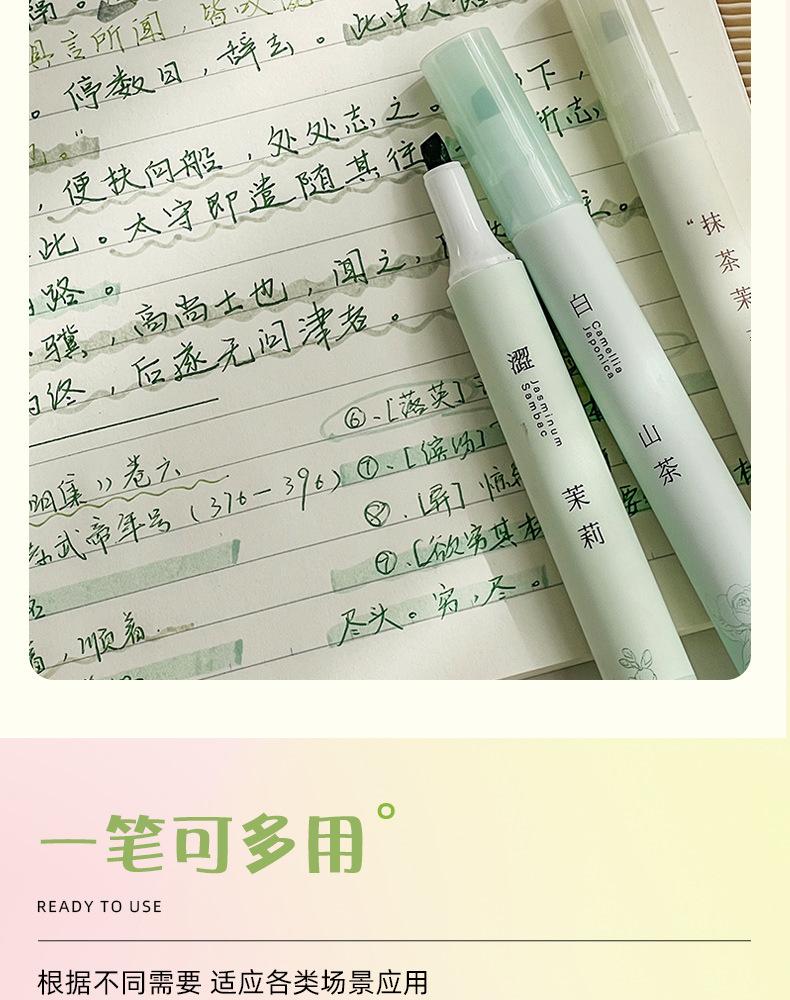 具言所闻，皆
。停数日，辞去。此中人
下，
，便扶向船，处处志之。
所志，
此。太守即遣随其往
路。
骥，高尚士也，闻之，
终，后遂无问津者。
⑥、[落英]
⑦、[缤纷]
卷六
武帝年号（376—396）
⑧、[异]
[欲穷其
，顺着
尽头。穷，尽。
涩
Jasminum
Sambac
茉莉
白
Camellia
japonica
山茶
“抹茶茉
一笔可多用
READY TO USE
根据不同需要 适应各类场景应用